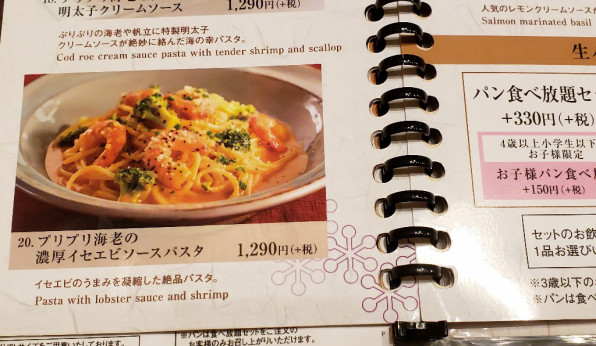 明太子クリームソース 1,290円(+税)
ぷりぷりの海老や帆立に特製明太子
クリームソースが絶妙に絡んだ海の幸パスタ。
Cod roe cream sauce pasta with tender shrimp and scallop
20. プリプリ海老の
濃厚イセエビソースパスタ 1,290円(+税)
イセエビのうまみを凝縮した絶品パスタ。
Pasta with lobster sauce and shrimp
※パンは食べ放題セットをご注文の
お客様のみお召し上がりいただけます。
P
人気のレモンクリームソースが
Salmon marinated basil
生
パン食べ放題セッ
+330円(+税)
4歳以上小学生以下
お子様限定
お子様パン食べ放
+150円(+税)
セットのお飲
1品お選びい
※3歳以下の
※パンは食べ